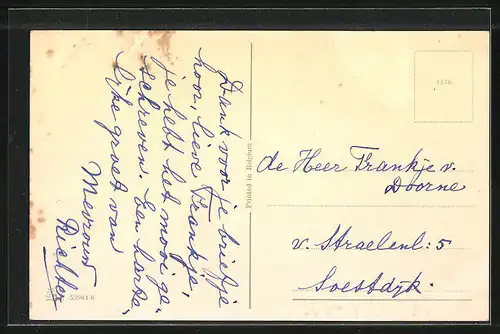 Dank voor je briefje
hoor, lieve Frankje,
je hebt het mooi ge-
schreven. Een harte-
lijke groet van
Mevrouw
Richter
Printed in Belgium
1176
de Heer Frankje v.
Doorne
v. Straelenl: 5
Soestdijk.